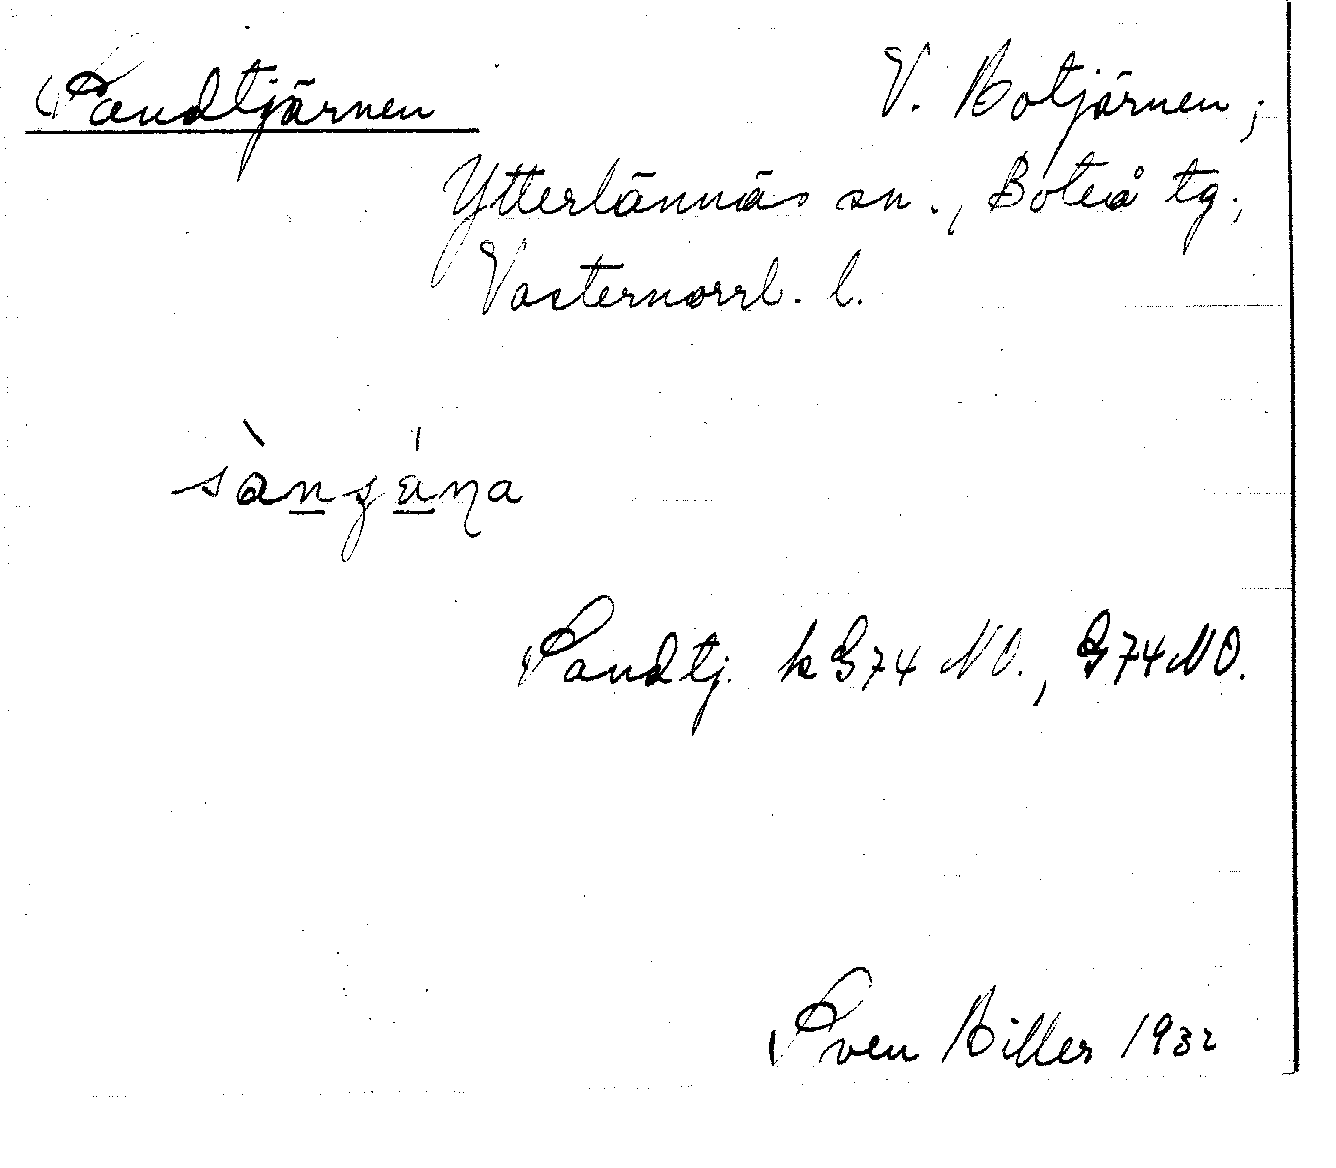 Sandtjärnen
V. Botjärnen;
Ytterlännäs sn., Boteå tg.,
Västernorrl. l.
sàn̲ʂá̲ɳa
Sandtj. k G74 NO., G74 NO.
Sven Biller 1932